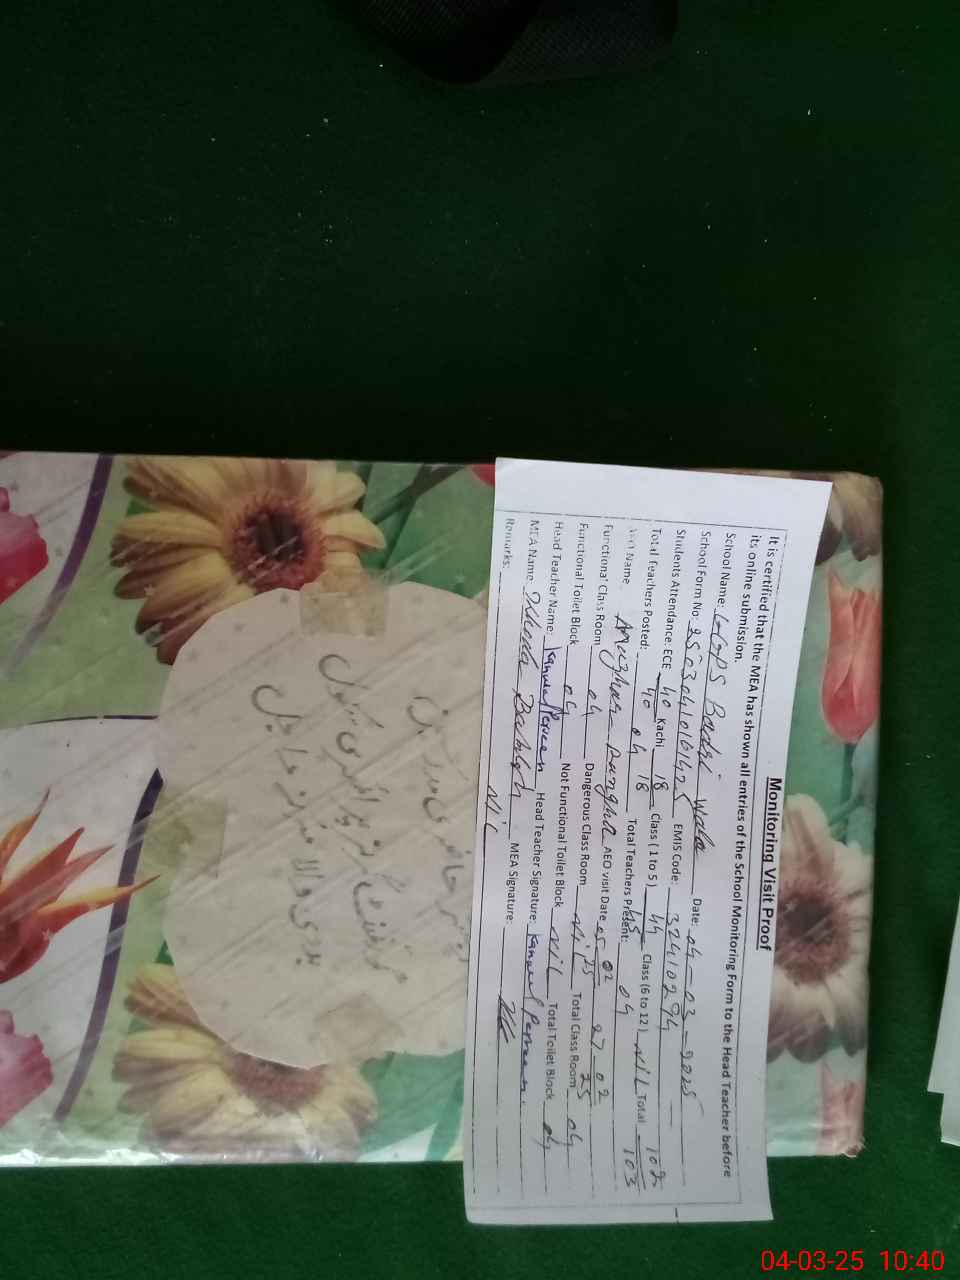 Monitoring Visit Proof
It is certified that the MEA has shown all entries of the School Monitoring Form to the Head Teacher before
its online submission.
School Name: GGPS Badri Wala Date: 04-03-2025
School Form No: 2503041016142 EMIS Code: 32410294
Students Attendance: ECE 40 Kachi 18 Class (1 to 5) 44 Class (6 to 12) Nil Total 102
40 18 45 103
Total Teachers Posted: 04 Total Teachers Present: 04
AEO Name Mazhar AEO visit Date 05-02-25 27-02-25
Functional Class Room 04 Dangerous Class Room Nil Total Class Room 04
Functional Toilet Block 04 Not Functional Toilet Block Nil Total Toilet Block 04
Head Teacher Name: Kanwal Perveen Head Teacher Signature: Kanwal Perveen
MEA Name Khuda Bakhsh MEA Signature:
Remarks: Nil
رجسٹر حاضری مدرسین
گورنمنٹ گرلز پرائمری سکول
04-03-25 10:40